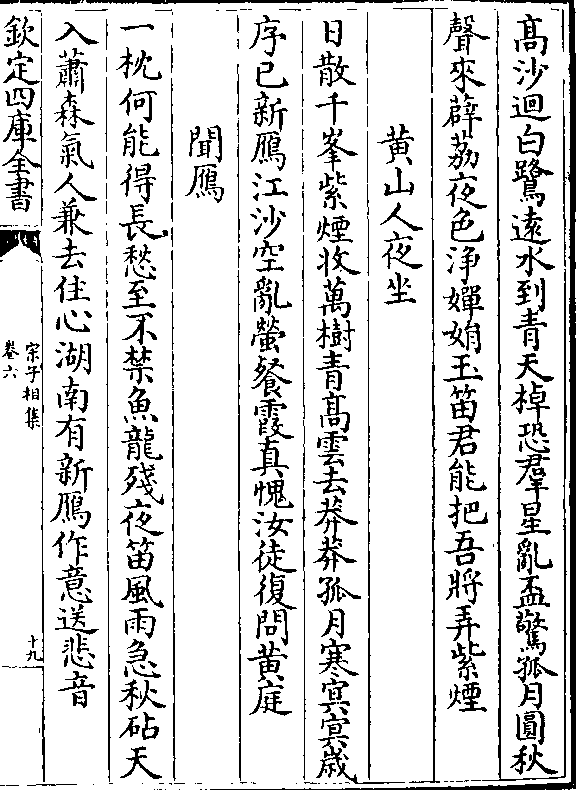 高沙迴白鷺遠水到青天棹恐羣星亂盃驚孤月圓秋
聲來薜荔夜色淨嬋娟玉笛君能把吾將弄紫煙
黃山人夜坐
日散千峯紫煙收萬樹青高雲去莽莽孤月寒寞寞歲
序已新鴈江沙空亂螢餐霞真愧汝徒復問黃庭
聞鴈
一枕何能得長愁至不禁魚龍殘夜笛風雨急秋砧天
入蕭森氣人兼去住心湖南有新鴈作意送悲音
欽定四庫全書
宗子相集
卷六
十九